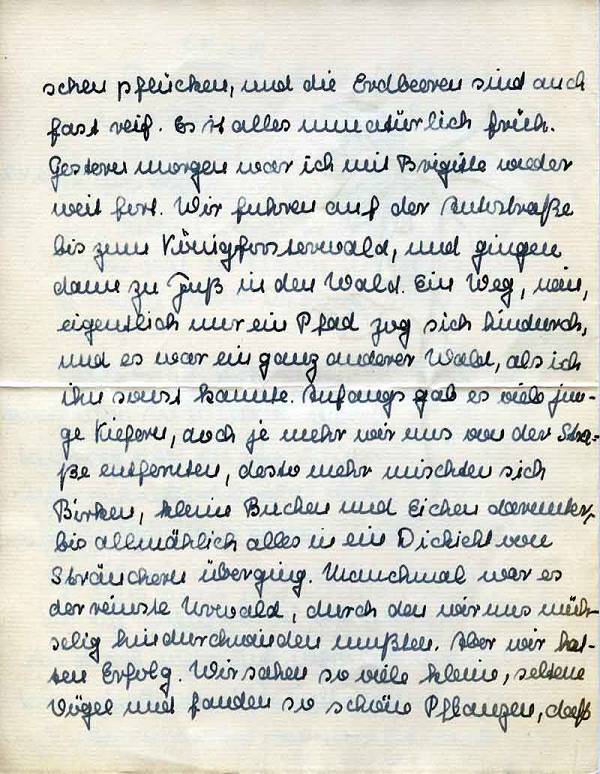 schen pflücken, und die Erdbeeren sind auch
fast reif. Es ist alles unnatürlich früh.
Gestern morgen war ich mit Brigitte wieder
weit fort. Wir fuhren auf der Autostraße
bis zum Königforsterwald, und gingen
dann zu Fuß in den Wald. Ein Weg, nein,
eigentlich nur ein Pfad zog sich hindurch,
und es war ein ganz anderer Wald, als ich
ihn sonst kannte. Anfangs gab es viele jun-
ge Kiefern, doch je mehr wir uns von der Stra-
ße entfernten, desto mehr mischten sich
Birken, kleine Buchen und Eichen darunter,
bis allmählich alles in ein Dickicht von
Sträuchern überging. Manchmal war es
der reinste Urwald, durch den wir uns müh-
selig hindurchwinden mußten. Aber wir hat-
ten Erfolg. Wir sahen so viele kleine, seltene
Vögel und fanden so schöne Pflanzen, daß